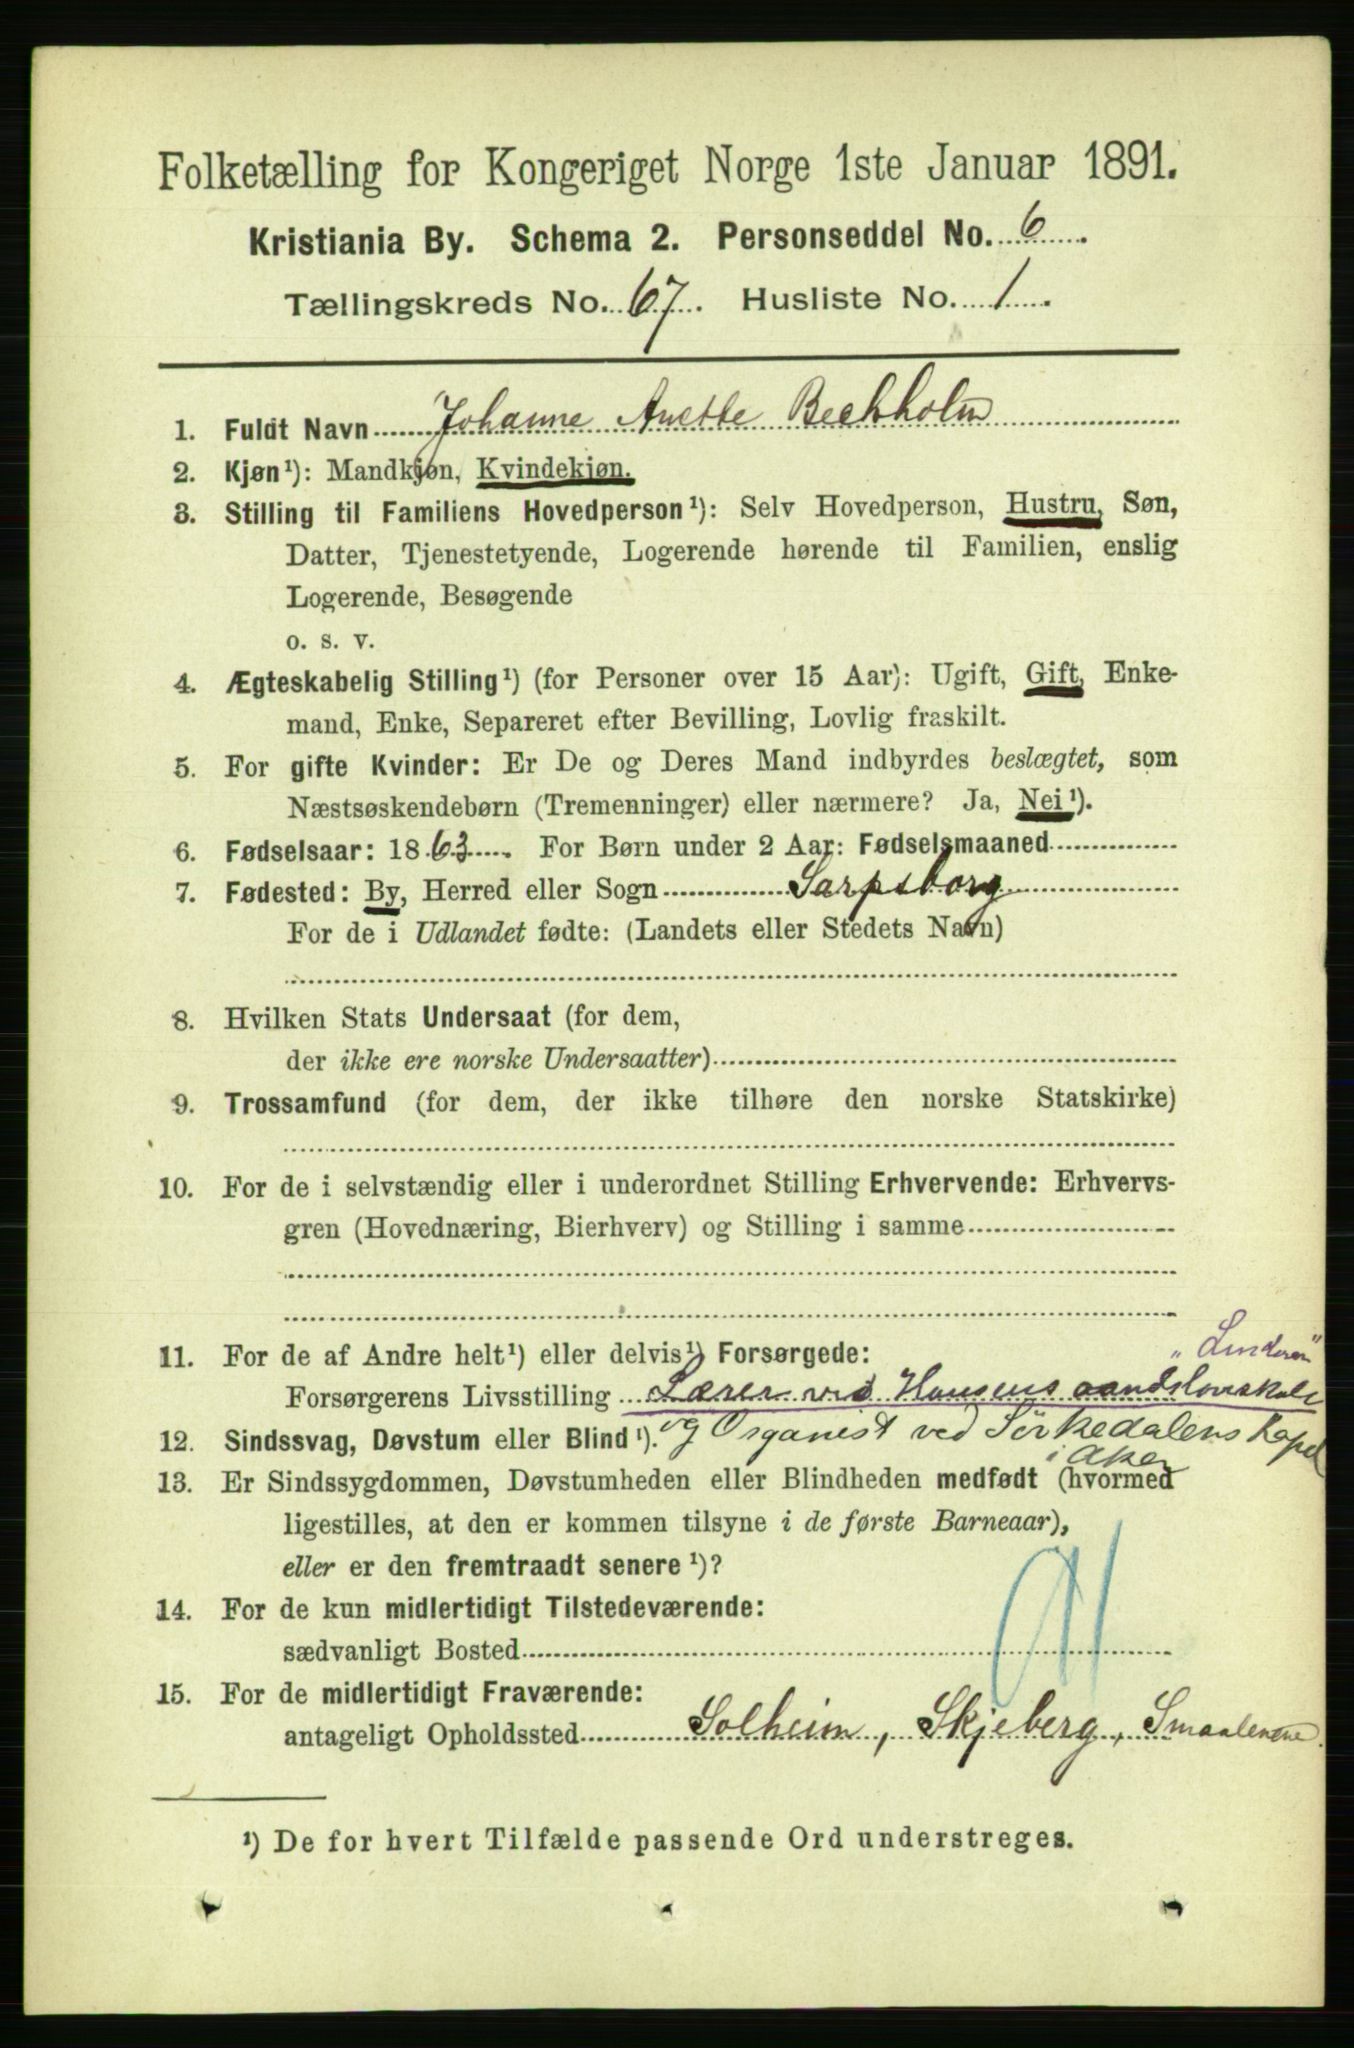 Folketælling for Kongeriget Norge 1ste Januar 1891.
Kristiania By. Schema 2. Personseddel No. 6
Tællingskreds No. 67. Husliste No. 1.
1. Fuldt Navn Johanne Anette Beckholm
2. Kjøn¹): Mandkjøn, Kvindekjøn.
3. Stilling til Familiens Hovedperson¹): Selv Hovedperson, Hustru, Søn,
Datter, Tjenestetyende, Logerende hørende til Familien, enslig
Logerende, Besøgende
o. s. v.
4. Ægteskabelig Stilling¹) (for Personer over 15 Aar): Ugift, Gift, Enke-
mand, Enke, Separeret efter Bevilling, Lovlig fraskilt.
5. For gifte Kvinder: Er De og Deres Mand indbyrdes beslægtet, som
Næstsøskendebørn (Tremenninger) eller nærmere? Ja, Nei¹).
6. Fødselsaar: 1863. For Børn under 2 Aar: Fødselsmaaned
7. Fødested: By, Herred eller Sogn Sarpsborg
For de i Udlandet fødte: (Landets eller Stedets Navn)
8. Hvilken Stats Undersaat (for dem,
der ikke ere norske Undersaatter)
9. Trossamfund (for dem, der ikke tilhøre den norske Statskirke)
10. For de i selvstændig eller i underordnet Stilling Erhvervende: Erhvervs-
gren (Hovednæring, Bierhverv) og Stilling i samme
11. For de af Andre helt¹) eller delvis¹) Forsørgede:
Forsørgerens Livsstilling Lærer ved Hansens
12. Sindssvag, Døvstum eller Blind¹). og Organist ved Sörkedalens Kapel
i Aker
13. Er Sindssygdommen, Døvstumheden eller Blindheden medfødt (hvormed
ligestilles, at den er kommen tilsyne i de første Barneaar),
eller er den fremtraadt senere¹)?
14. For de kun midlertidigt Tilstedeværende:
sædvanligt Bosted
15. For de midlertidigt Fraværende:
antageligt Opholdssted Solheim, Skjeberg, Smaalenene.
¹) De for hvert Tilfælde passende Ord understreges.